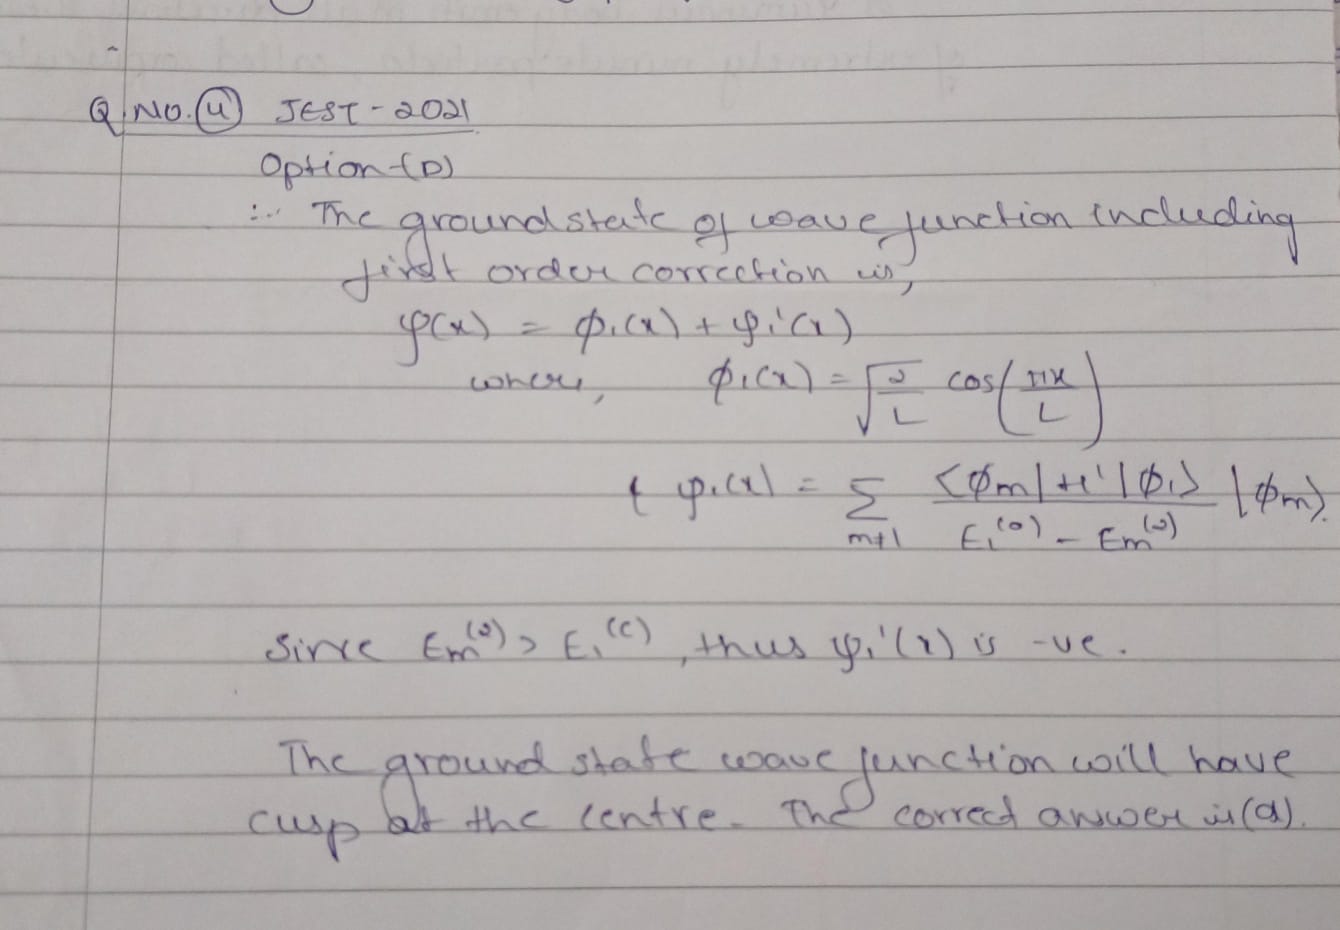 Q.NO.(4) JEST-2021
Option-(D)
∴ The ground state of wave function including
first order correction is,
φ(x) = ϕ₁(x) + φ₁'(x)
where, ϕ₁(x) = √(2/L) cos(πx/L)
& φ₁(x) = Σ_{m+1} <ϕm|H'|ϕ₁> / E₁⁽⁰⁾ - Em⁽⁰⁾ |ϕm>.
Since Em⁽⁰⁾ > E₁⁽⁰⁾, thus φ₁'(x) is -ve.
The ground state wave function will have
cusp at the centre. The correct answer is (d).